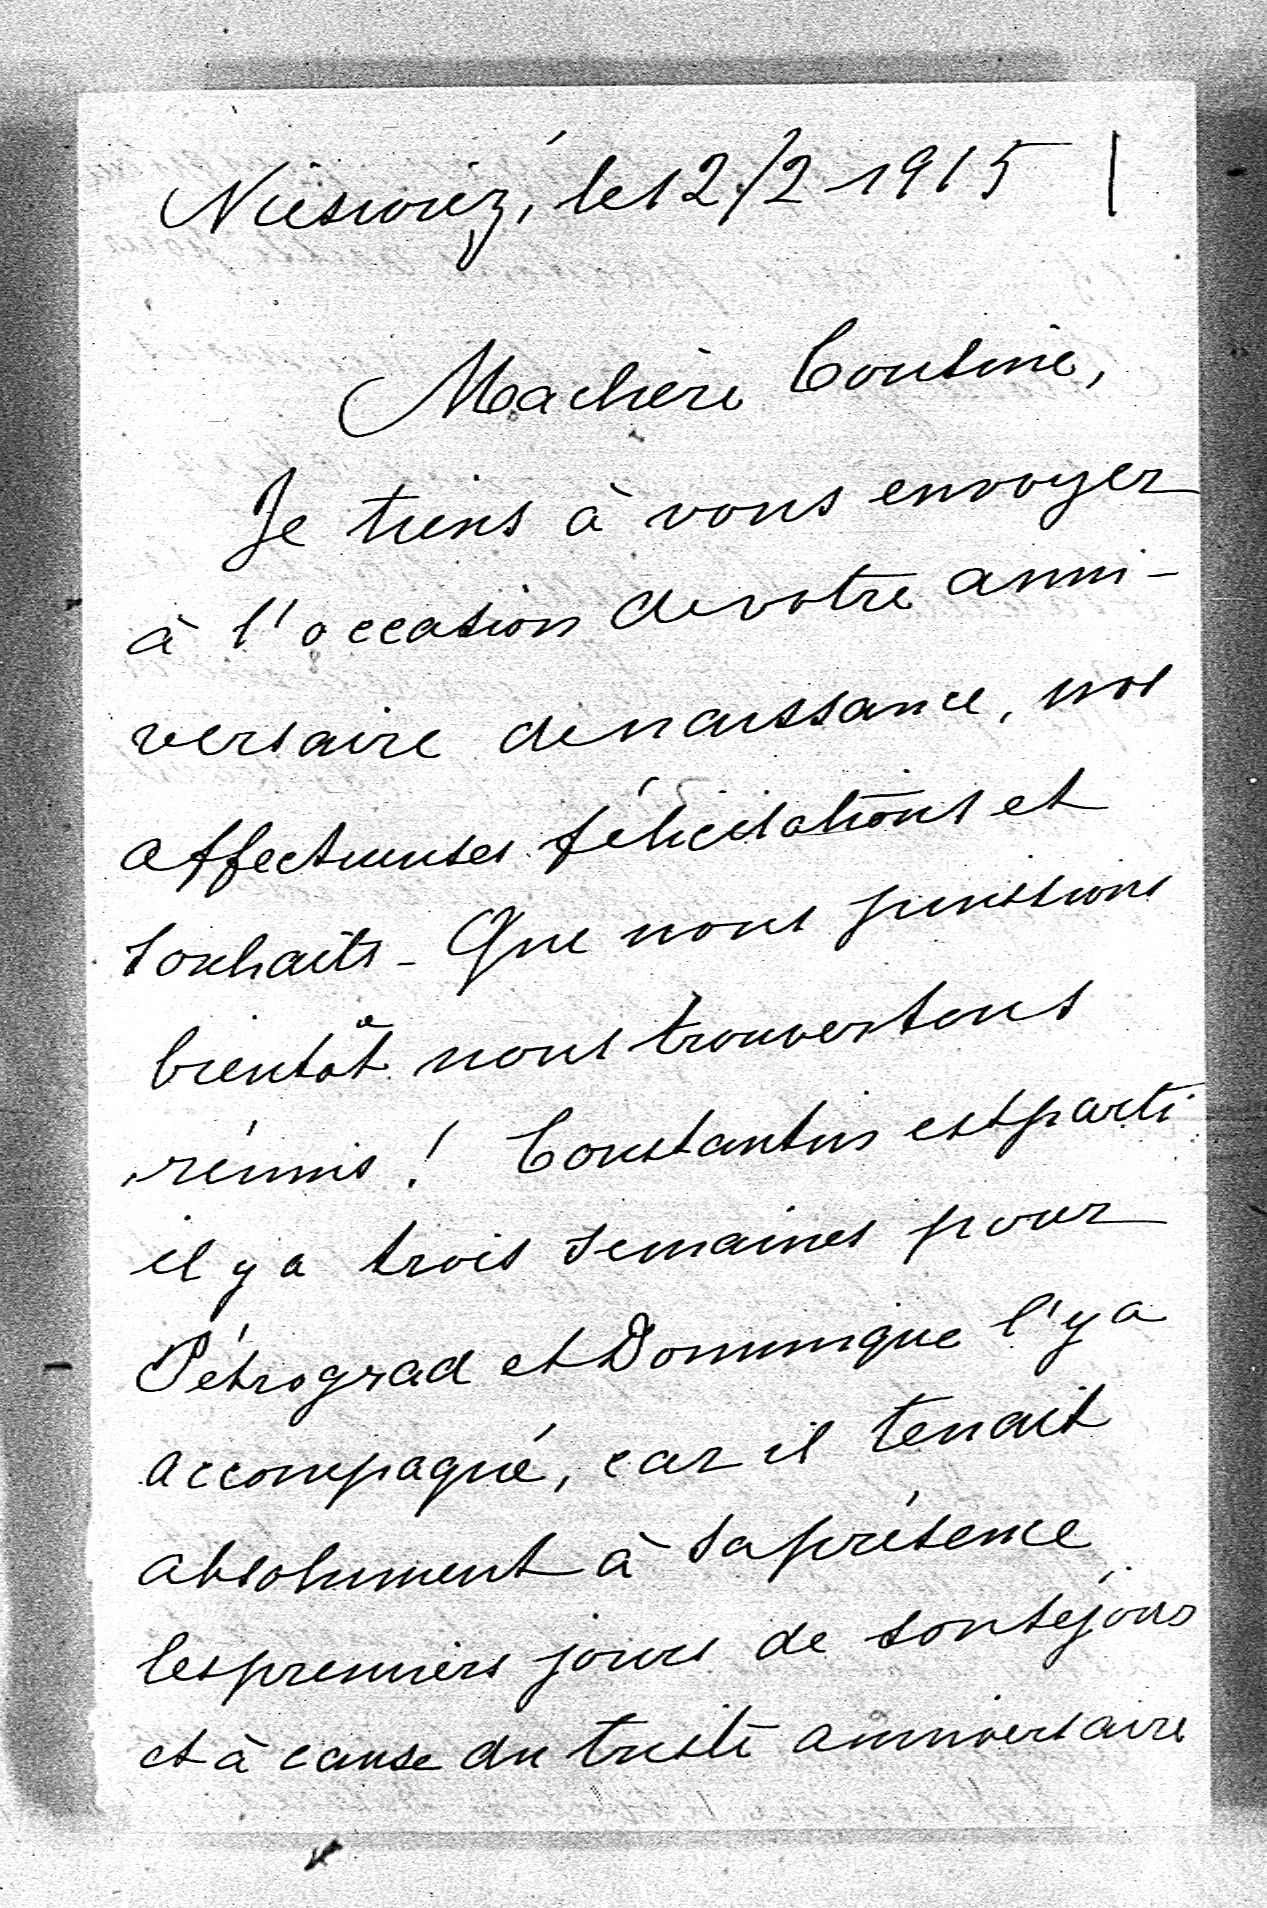 Nieswież, le 12/2 1915
Ma chère Cousine,
Je tiens à vous envoyer
à l'occasion de votre anni-
versaire de naissance, nos
affectueuses félicitations et
souhaits - Que nous puissions
bientôt nous trouver tous
réunis ! Constantin est parti
il y a trois semaines pour
Pétrograd et Dominique l'y a
accompagné, car il tenait
absolument à sa présence
les premiers jours de son séjour
et à cause du triste anniversaire